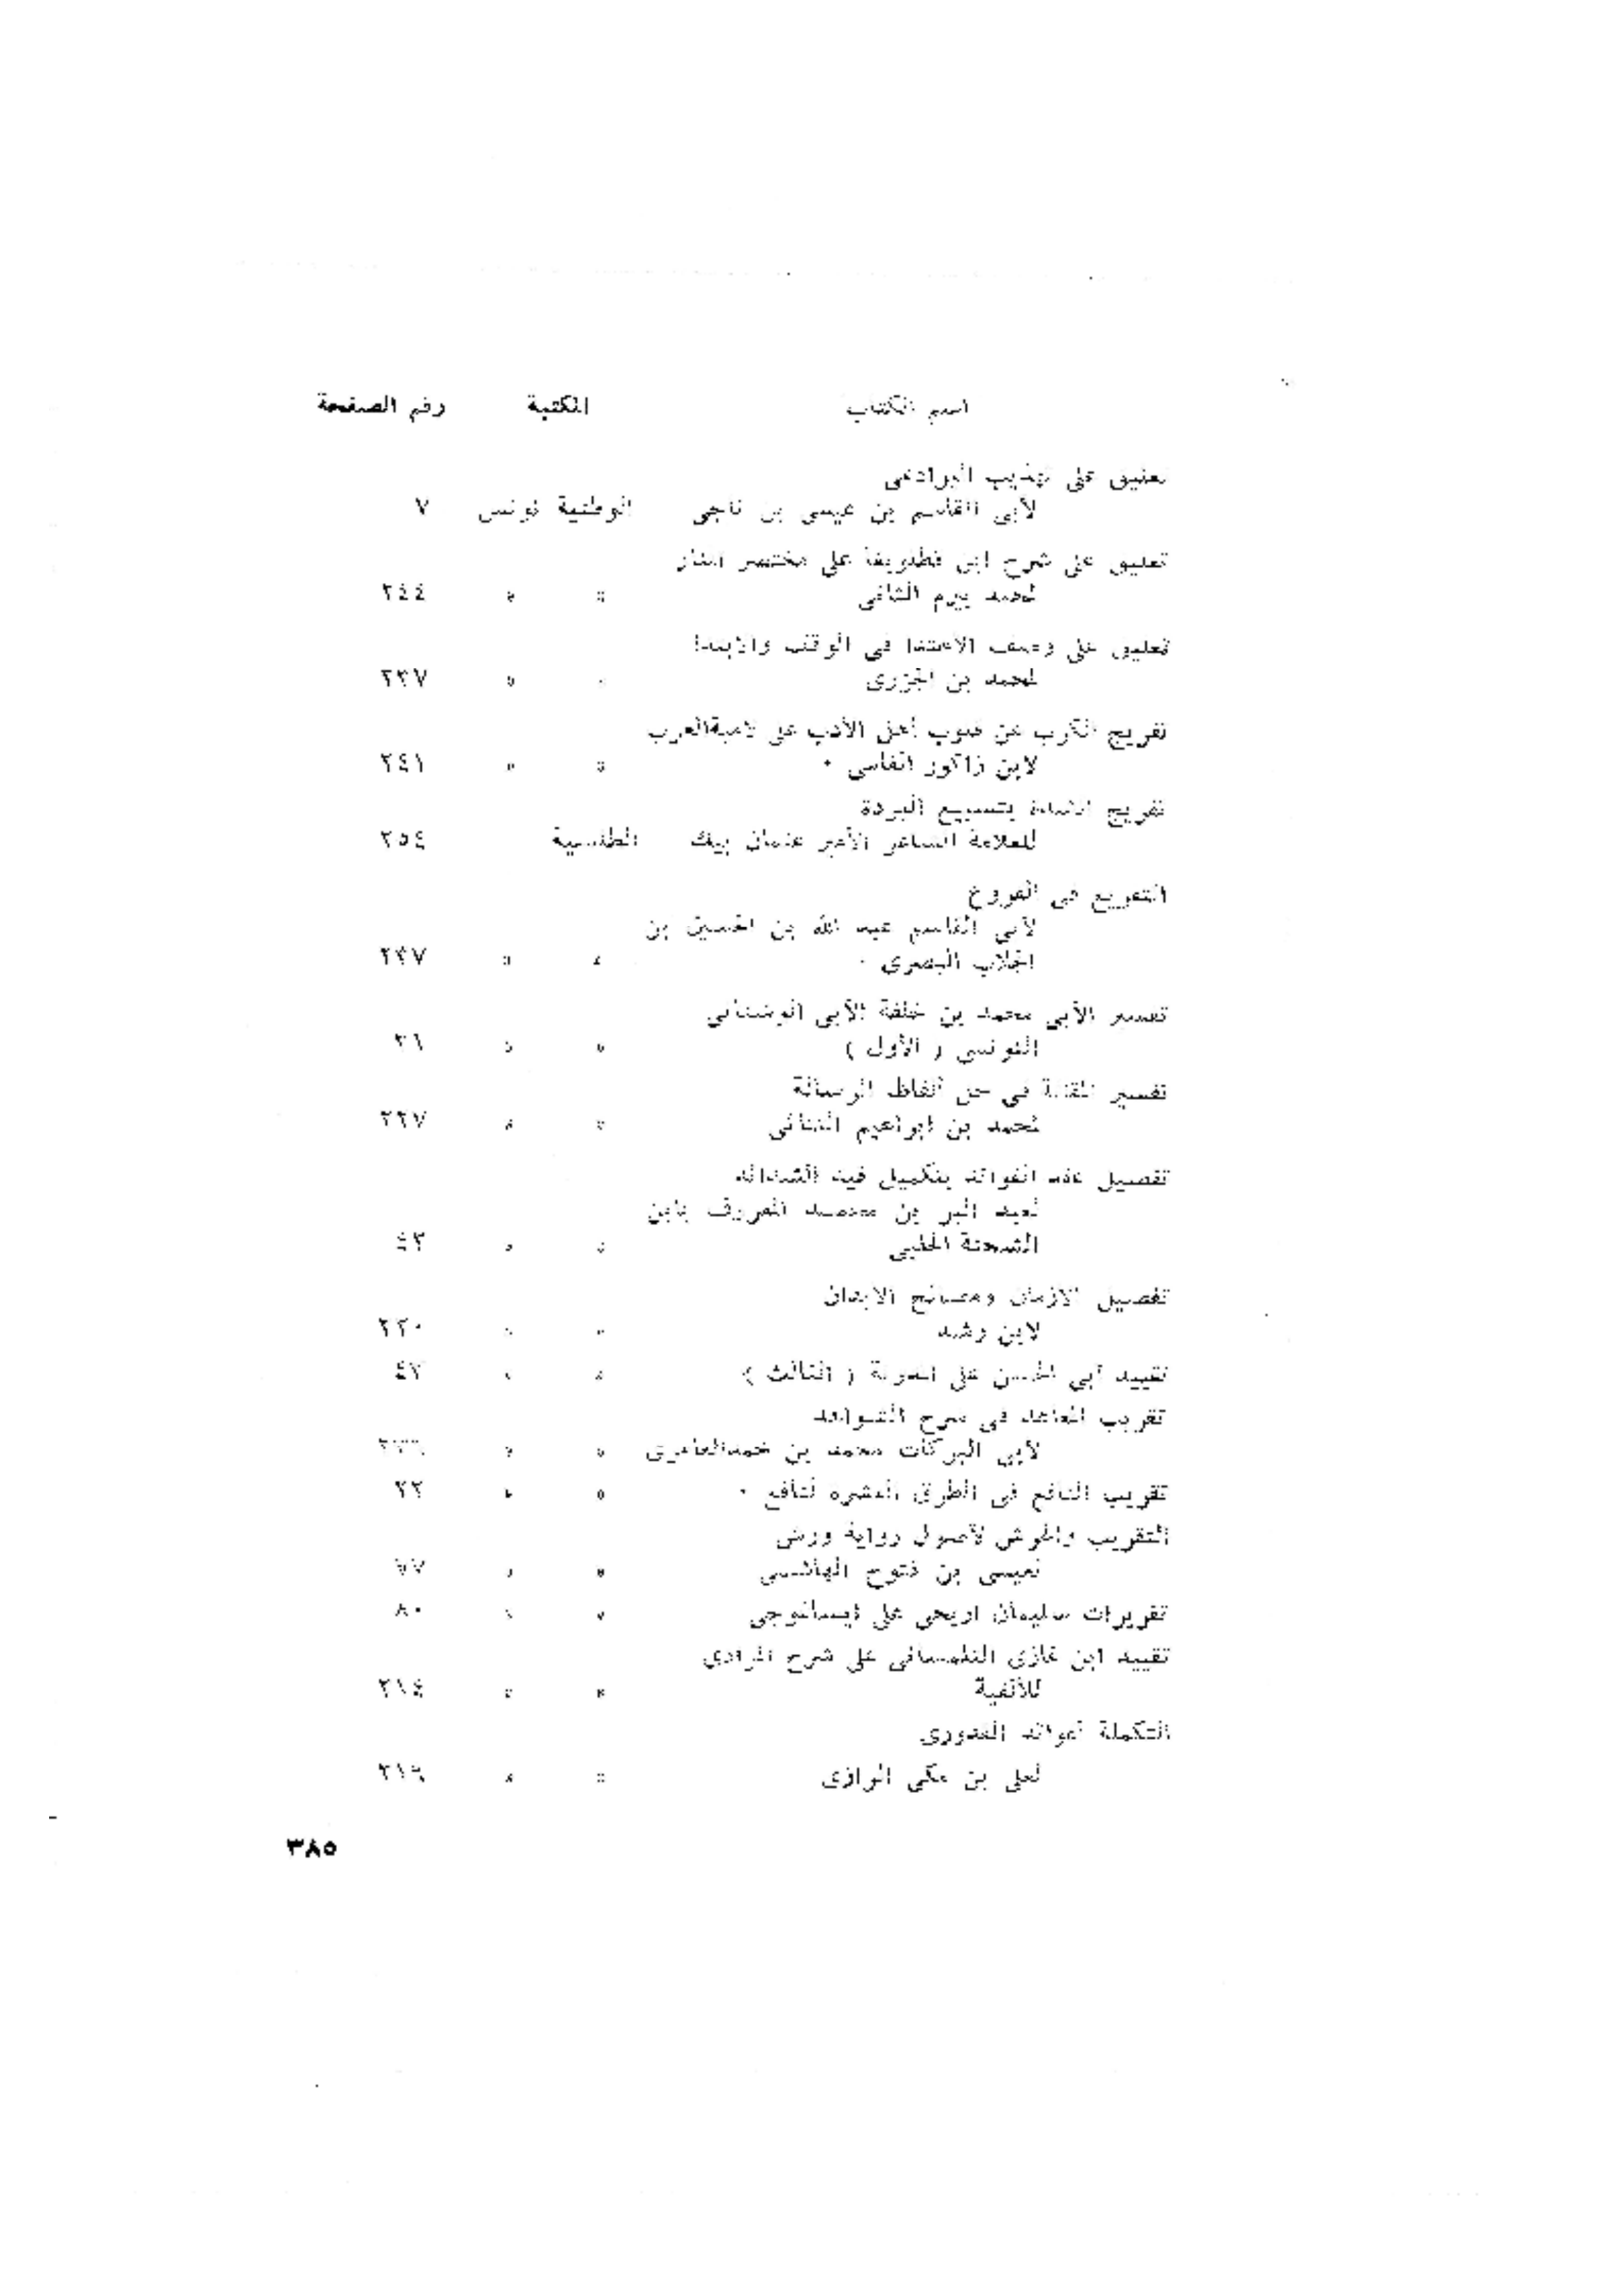 اسم الكتاب المكتبة رقم الصفحة
تعليق على تهذيب البرادعى
لأبى القاسم بن عيسى بن ناجى الوطنية تونس ٧
تعليق على شرح ابن قطلوبغا على مختصر المنار
لمحمد بيرم الثانى » » ٢٤٤
تعليق على وصف الاهتدا فى الوقف والابتدا
لمحمد بن الجزرى » » ٢٣٧
تفريج الكرب عن قلوب أهل الأدب على لامية العرب
لابن زاكور الفاسى ٠ » » ٢٤١
تفريج الشدة بتسبيع البردة
للعلامة الشاعر الأمير عثمان بيك ٢٥٤
التفريع فى الفروع
لأبى القاسم عبيد الله بن الحسين بن
الجلاب البصرى ٠ » »
تفسير الأبى محمد بن خلفة الأبى الوشتانى
التونسى ( الأول ) » »
تفسير المقالة فى حل ألفاظ الرسالة
لمحمد بن ابراهيم التتائى » »
تفصيل عقد الفوائد بتكميل قيد الشدائد
لعبد البر بن محمد المعروف بابن
الشحنة الحلبى » »
تفصيل الازمان ومصالح الابدان
لابن رشد » »
تقييد أبى الحسن على المدونة ( الثالث ) » »
تقريب المعاهد فى شرح الشواهد
لأبى البركات محمد بن العامرى » »
تقريب النافع فى الطرق العشرة لنافع ٠ » »
التقريب لأصول رواية ورش
لعيسى بن فتوح الهاشمى » »
تقريرات سليمان على ايساغوجى » » ٨٠
تقييد ابن غازى التلمسانى على شرح المرادى
للألفية » » ٢١٤
التكملة القدورى
لعلى بن مكى الرازى » » ٢١٩
٣٨٥